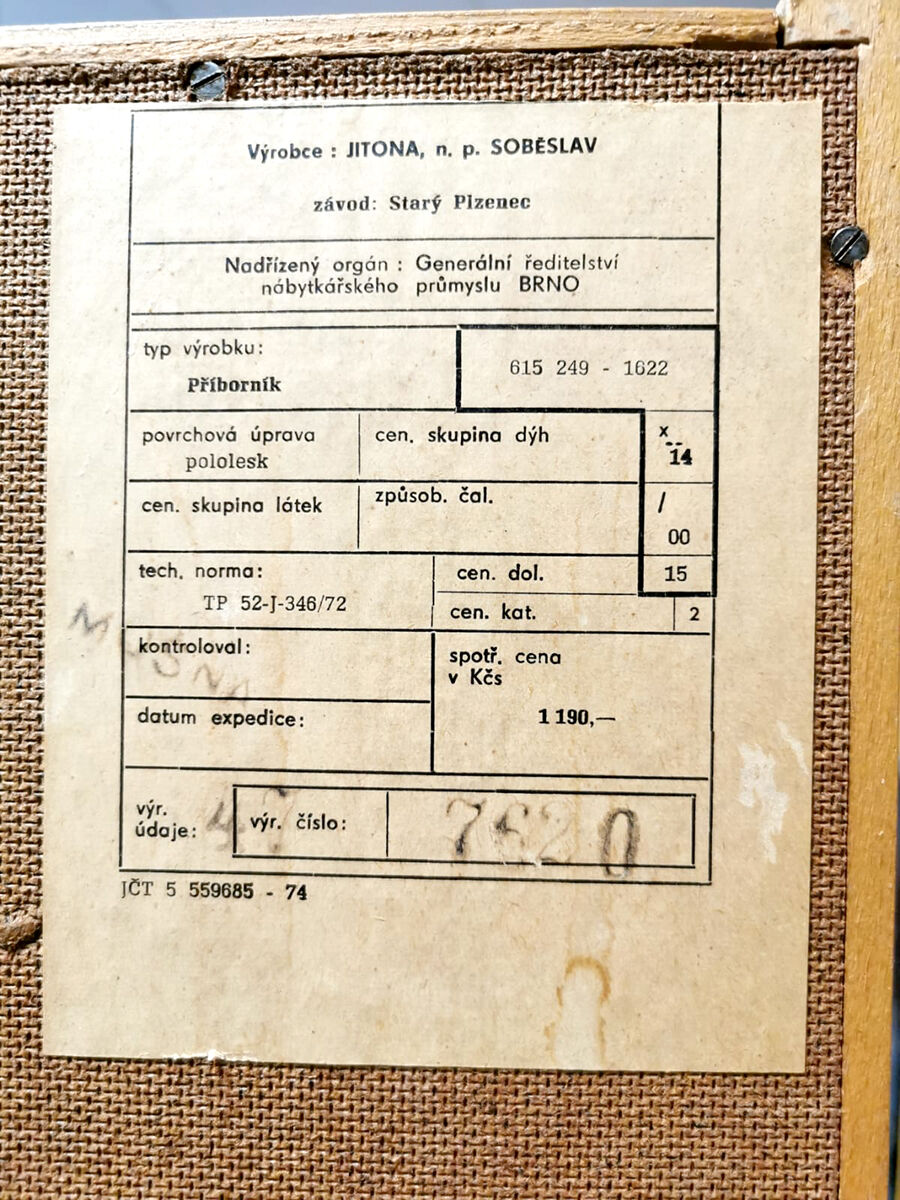 Výrobce : JITONA, n. p. SOBĚSLAV
závod: Starý Plzenec
Nadřízený orgán : Generální ředitelství
nábytkářského průmyslu BRNO
typ výrobku:
Příborník
615 249 - 1622
povrchová úprava
pololesk
cen. skupina dýh
x
14
cen. skupina látek
způsob. čal.
/
00
tech. norma:
TP 52-J-346/72
cen. dol.
15
cen. kat.
2
kontroloval:
spotř. cena
v Kčs
1 190,—
datum expedice:
výr.
údaje:
výr. číslo:
7620
JČT 5 559685 - 74